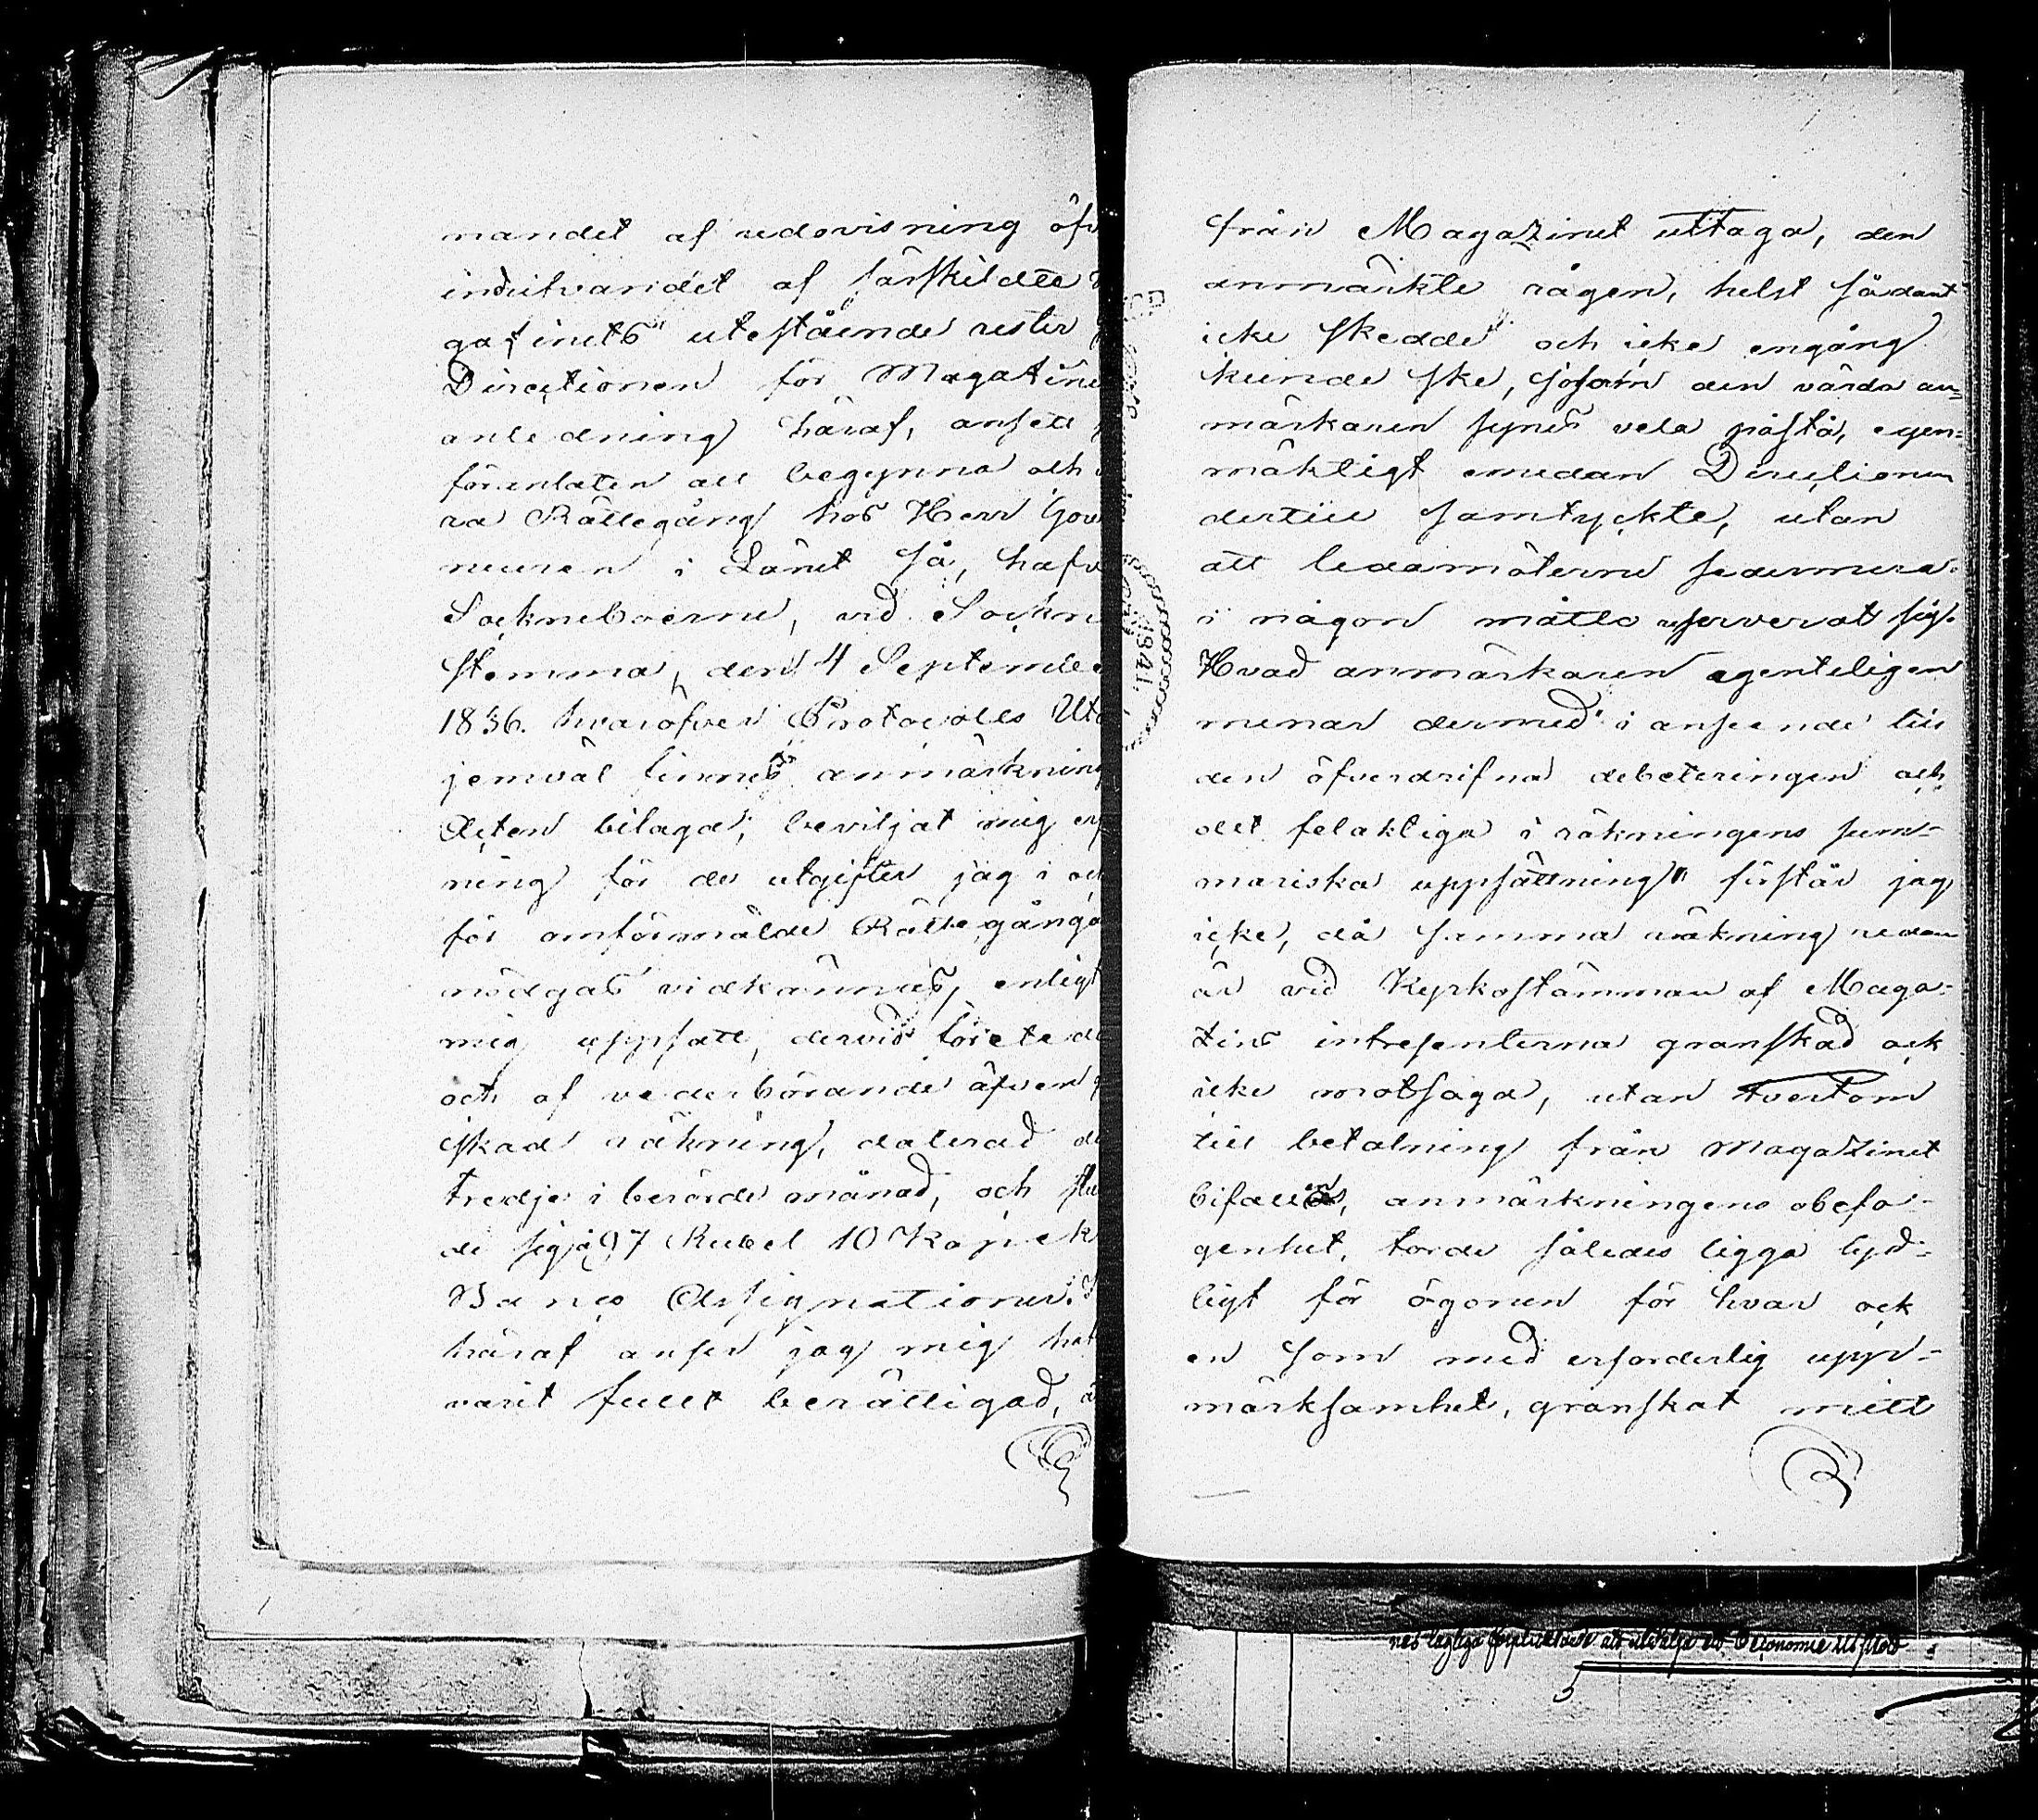 mandet af redovisning öfv
indrifvandet af särskildte
gazinets utestående rester
Directionen för Magazine
anledning häraf, ansett
förenlaten att begynna och
ra Rättegång hos Herr Gou
neuren i Länet så, hafv
Sockneboerne, vid Sockne
stemma, den 4 Septembe
1836. hvaröfver Protocolls Ut
jemväl finnes anmärkning
Acten bilagd, beviljat mig er
ning för de utgifter jag i oc
för omförmälde Rättegånga
nödgas vidkännas, enligt
mig uppsatt, dervid företedd
och af vederbörande äfven g
skad räkning, daterad de
tredje i berörde månad, och slu
de sig å 97 Rubel 10 Kopek
Banco Assignationer. I
häraf anser jag mig haf
varit fullt berättigad, a
från Magazinet uttaga, den
anmärkte rågen, helst sådant
icke skedde och icke engång
kunde ske, såsom den värda an=
märkaren synes vela påstå, egen=
mäktigt emedan Directionen
dertill samtyckte, utan
att ledamöterne sedermera
i någon måtto reserverat sig.
Hvad anmärkaren egenteligen
menar dermed i anseende till
den öfverdrifna debeteringen och
det felaktiga i räkningens sum-
mariska uppsättning" förstår jag
icke, då samma räkning redan
är vid Kyrkostämman af Maga=
zins intressenterna granskad och
icke motsagd, utan tvertom
till betalning från Magazinet
bifallen, anmärkningens obefo-
genhet, torde således ligga tyd=
ligt för ögonen för hvar ock
en som med erforderlig upp-
märksamhet, granskat mitt
1841.